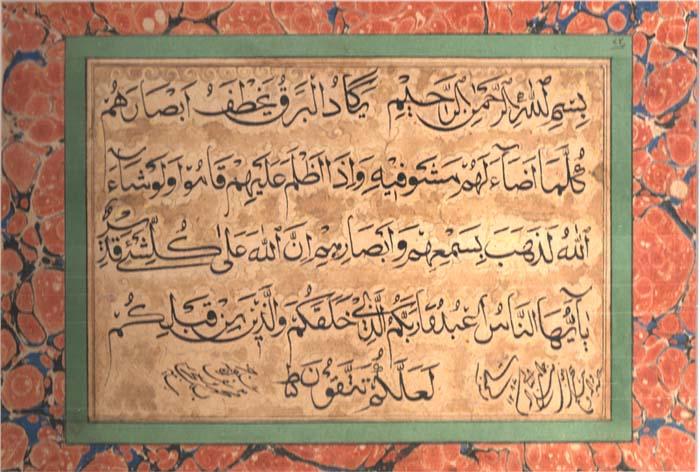 بِسْمِ اللهِ الرَّحْمٰنِ الرَّحِيْمِ يَكَادُ الْبَرْقُ يَخْطَفُ اَبْصَارَهُمْ
كُلَّمَا اَضَاءَ لَهُمْ مَشَوْا فِيْهِ وَاِذَا اَظْلَمَ عَلَيْهِمْ قَامُوْا وَلَوْ شَاءَ
اللهُ لَذَهَبَ بِسَمْعِهِمْ وَاَبْصَارِهِمْ اِنَّ اللهَ عَلٰى كُلِّ شَيْءٍ قَدِيْرٌ
يَا اَيُّهَا النَّاسُ اعْبُدُوْا رَبَّكُمُ الَّذِيْ خَلَقَكُمْ وَالَّذِيْنَ مِنْ قَبْلِكُمْ
لَعَلَّكُمْ تَتَّقُوْنَ